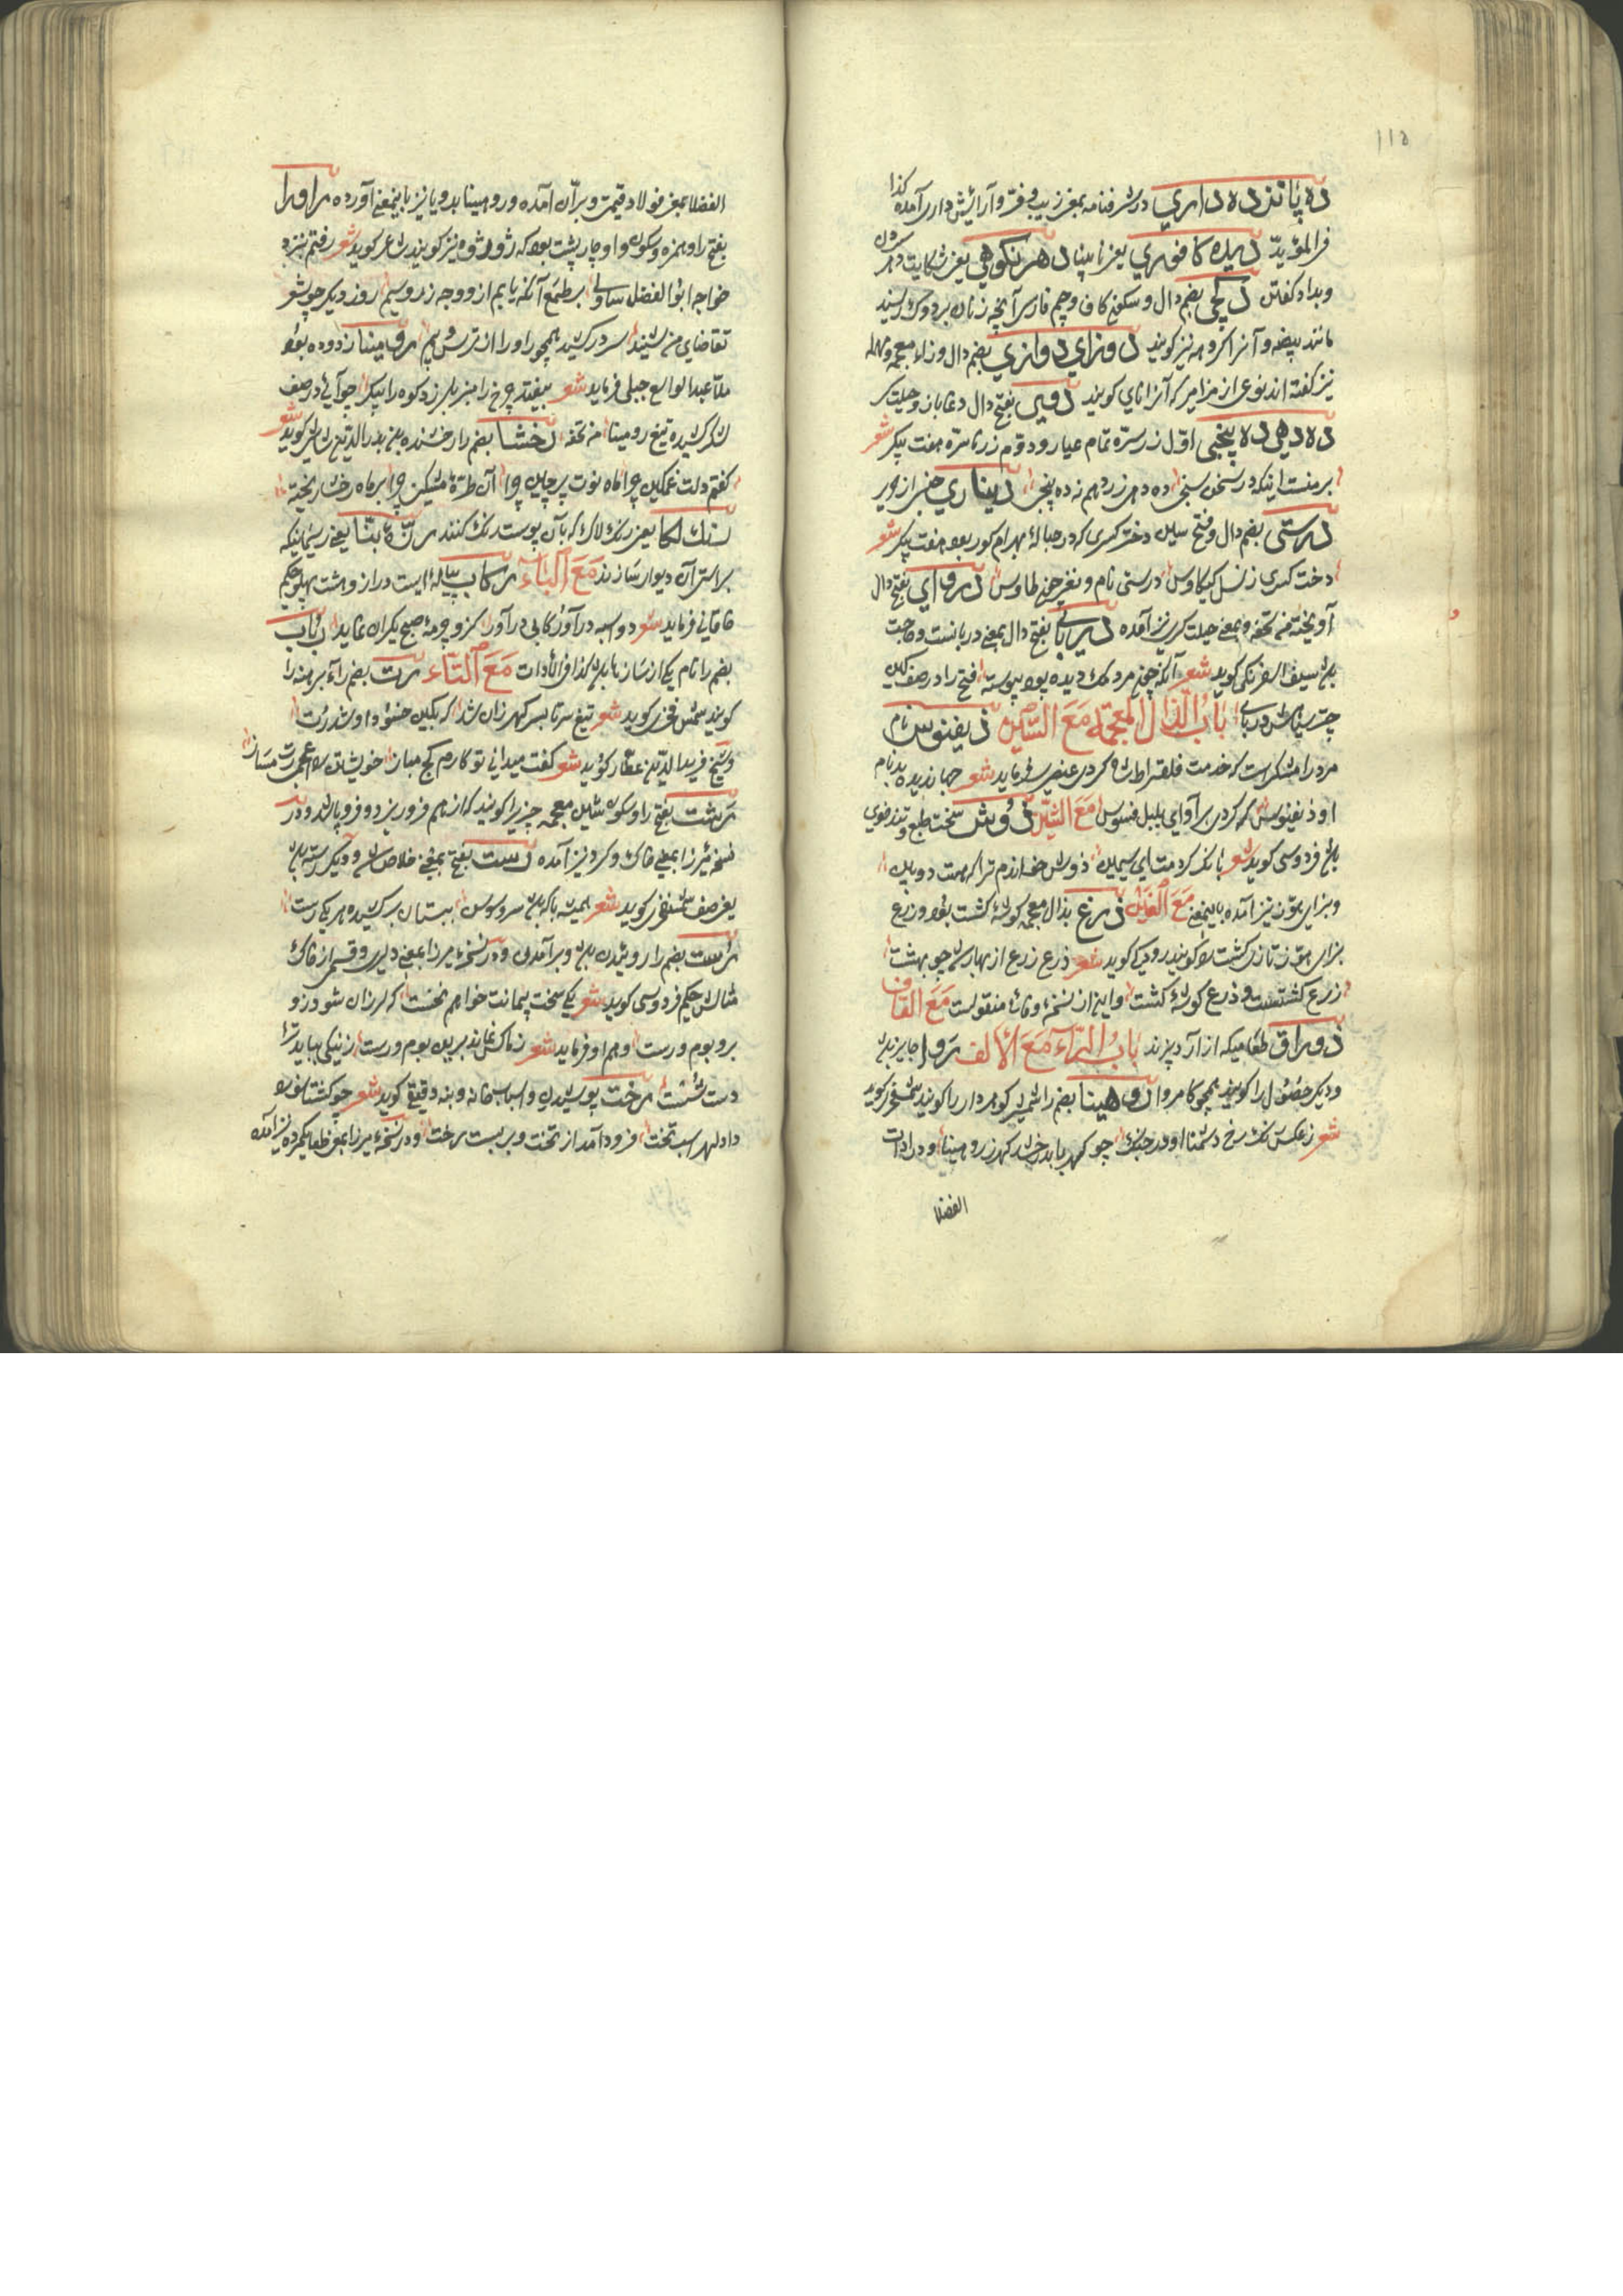 ١١٥
ده پانزده داري در شرفنامه بمعنی زیب و فرّ و آرایش داری آمده کذا
فی المؤیدّ دیده کافوري یعنی نابینا دهر نکوهي یعنی شکایت دهر کردن
و بداد کفتن دکچی بضم دال و سکون کاف و جیم فارسی آنچه زنان بر دوک ریسند
مانند بیضه و آنرا کروهه نیز کویند دوزاي دوازي بضم دال و زاء معجمه و مهمله
نیز کفته اند نوعی از مزامیر که آنرا نای کویند دوی بفتح دال دغا باز و حیلت کر
ده دهی ده پنجی اوّل زر سره تمام عیار و دوّم زر ناسره هفت پیکر شعر
بر منست اینکه در سخن سنجی ده دهی زر دهم نه ده پنجی دیناري جنس از حریر
درستی بضم دال و فتح سین دختر کسری که در حبالهٔ بهرام کور بود هفت پیکر شعر
دخت کسری ز نسل کیکاوس درستی نام و نغز چون طاوس درواي بفتح دال
آویخته من تحفه و بمعنی حیلت کری نیز آمده دربای بفتح دال بمعنی دربایست و حاجت
بود سیف اسفرنکی کوید شعر آنکه چون مردمک دیده بود پیوسته فتح را در صف کین
چتر سیاهش دربای باب الذال المعجمة مع السّین ذیفنوس نام
مرد رامشکر است که خدمت فلقراط شاه کردی عنصری فرماید شعر جهاندیده بد نام
او ذیفنوس که کردی بر آوای بلبل فسوس مع الشّین ذوش سخت طبع و تندخوی
باشد فردوسی کوید شعر بانک کردمت ای سیمین ذوش خواندم ترا که هست دوش
و بزای هوّز نیز آمده باینمعنی مع الغین ذرغ بذال معجمه کوشهٔ کشت بود و زرع
بزای هوّز تازی کشت را کویند رودکی کوید شعر ذرع زرع از بهار شد چو بهشت
زرع کشتست و ذرع کوشهٔ کشت و این از نسخهٔ وفائی منقولست مع القاف
ذوراق طعامیکه از آرد پزند باب الرّاء مع الألف روا جایز بود
و دیکر حصول را کویند همچو کامروا روهینا بضم را شمشیر کوهردار را کویند شمس فخری کوید
شعر ز عکس تیغ سرخ دشمنا او در جنک چو کهربا بدرخشد کهر ز روهینا و در ادات
الفضلا
الفضلا بمعنی فولاد قیمت و برّان آمده و روهینا بدو یا نیز باینمعنی آورده راورا
بفتح را و همزه و سکون واو چارپشت بود که ژوژ و ژوه نیز کویند شاعر کوید شعر رفتم بنزد
خواجه ابو الفضل ساولی بر طمع آنکه یابم ازو وجه زر و سیم روز دیکر چو شعر
تقاضای من شنید سر در کشید همچو راورا از ترس و بیم رومینا زدوده بود
ملّا عبد الواسع جبلی فرماید شعر بیفتد چرخ را منبر بلرزد کوه را پیکر چو آئی در صف
لشکر کشیده تیغ رومینا من تحفه رخشا بضم را درخشنده بود بدر الدین شاشی کوید شعر
کفتم دلت غمکین چرا ماه نوت پرچین چرا آن طرّهٔ مشکین چرا بر ماه رخسار ریخته
رنک لکا یعنی رنک لاک که بآن پوست رنک کنند رشتهٔ بنّا یعنی ریسمانیکه
براستی آن دیوار سازند مع الباء رکاب پیالهٔ ایست دراز و هشت پهلو حکیم
خاقانی فرماید شعر دو اسبه در آور رکابی درآور کزو چرمهٔ صبح یکران نماید رباب
بضم را نام یکی از سازها بود کذا فی الأدات مع التّاء رت بضم راء برهنه را
کویند شمس فخری کوید شعر تیغ سر تا بسر کهر زان شد که بکین حسود او شد رت
و شیخ فرید الدین عطّار کوید شعر کفت میدانی تو کارم کج مباز خویشتن را عورت مساز
رشت بفتح را و سکون شین معجمه چیزیرا کویند که از هم فرو ریزد و فرو پاشد و در
نسخه میرزا بمعنی خاک و کرد نیز آمده رست بفتح بمعنی خلاص شد و دیکر رسته بود
یعنی صف شمس فخری کوید شعر همیشه تا که بود سرو و سوسن ببستان برکشیده هر یکی رست
رست بضم را روئیدن بود و برآمدن و در نسخهٔ میرزا بمعنی دلیری و قسمی از خاک
مثالش حکیم فردوسی کوید شعر یکی سخت پیمانت خواهم نخست که لرزان شود زو
بر و بوم و رست و هم او فرماید شعر نماند برین بوم و رست ز نیکی بباید ترا
دست شست رخت پوشیدن و اسباب خانه و بنه دقیقی کوید شعر چو کشتاسب را
داد لهراسب تخت فرود آمد از تخت و بر بست رخت و در نسخهٔ میرزا بمعنی نیز آمده